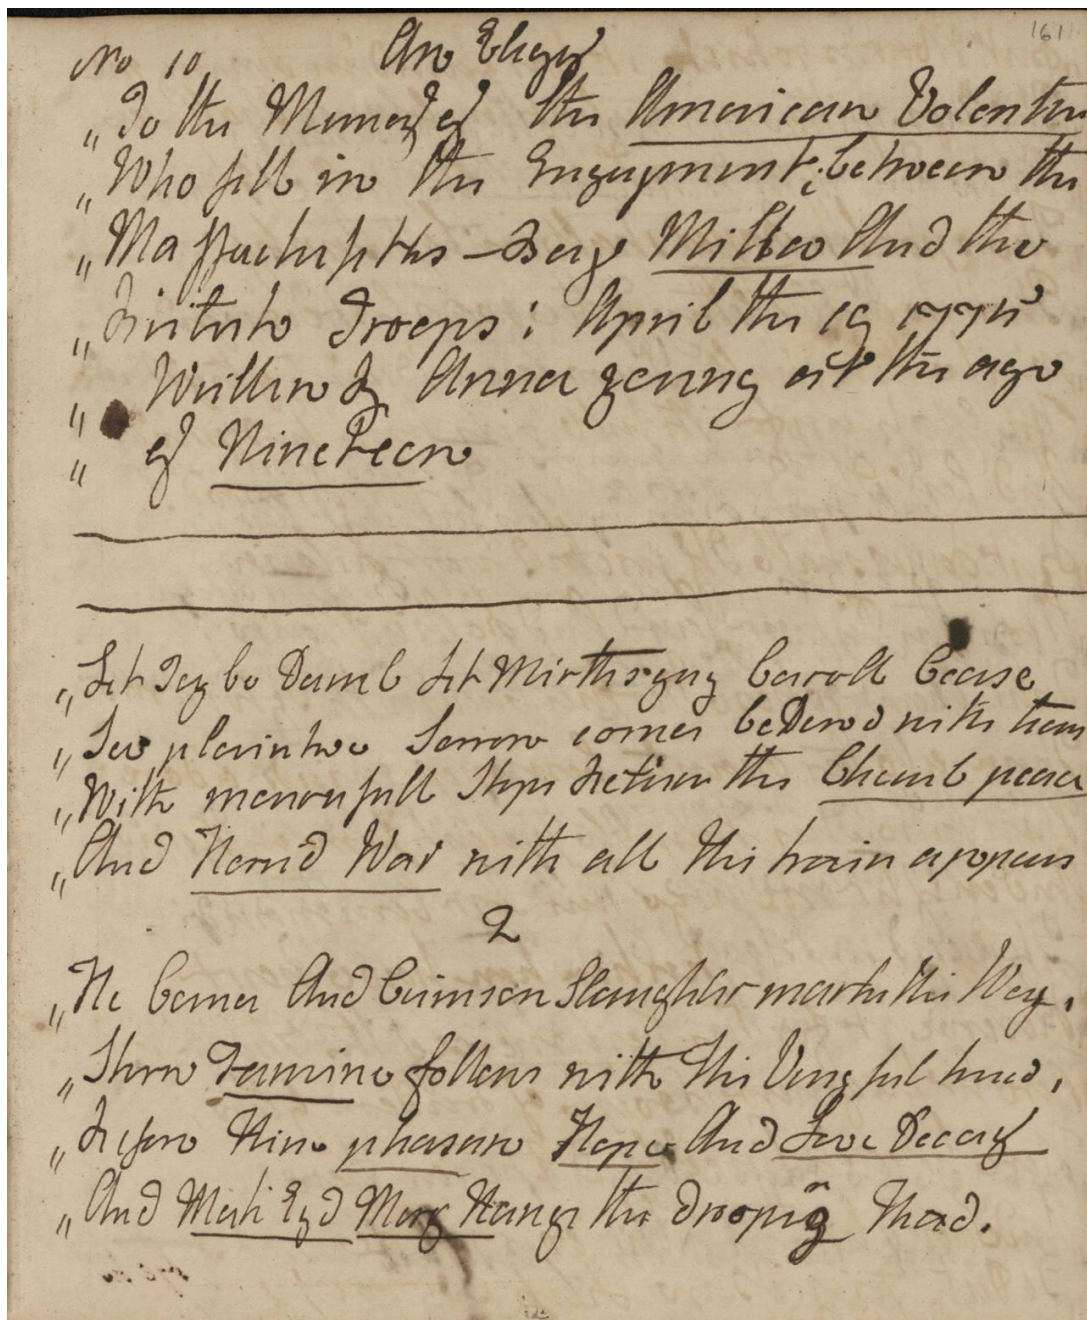 161
No 10 An Elegy
"To the Memory of the American Volenten
"Who fell in the Engagement; between the
"Massachusetts-Bay Militeo And the
"Brittish Troops: April the 19 1775
" Written by Anna young ait the age
" of Nineteen
"Let Joy be Dumb Let Mirths gay Caroll Cease
"See plaintive Sorrow comes beDewd with tears
"With mournfull Steps Retires the Cherub peace
"And Horrid War with all His train appears
2
"He Comes And Crimson Slaughter marks His Way.
"Stern Famine follows with His Vengful tread,
"Before Him pleasure Hope And Love Decay
"And Meek Eyd Mercy Hangs the Drooping Head.